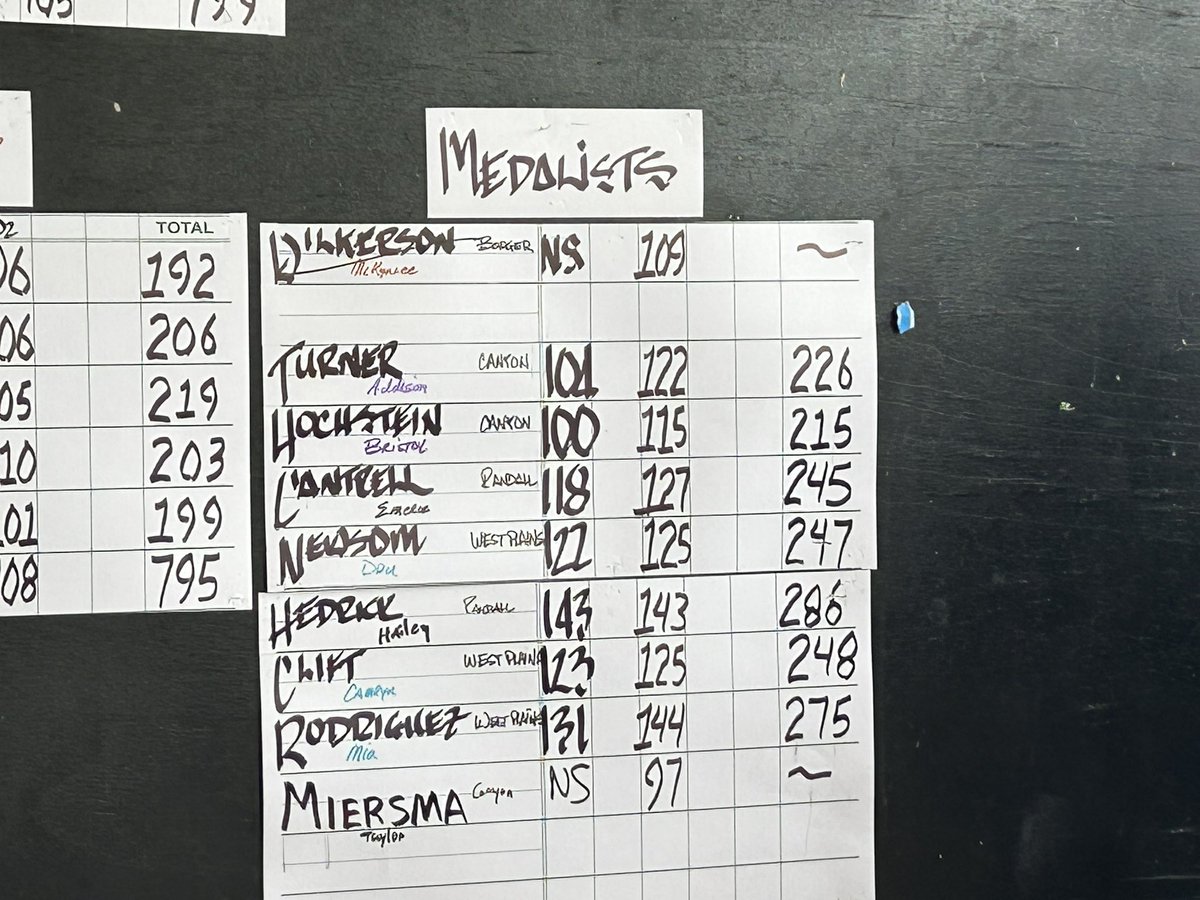 199
MEDALISTS
02 TOTAL
06 192
06 206
05 219
10 203
01 199
08 795
WILKERSON BORGER NS 109 ~
McKynlee
TURNER CANYON 104 122 226
Addison
HOCHSTEIN CANYON 100 115 215
BRISTOL
CANTRELL RANDALL 118 127 245
NEWSOM WEST PLAINS 122 125 247
HEDRICK RANDALL 143 143 286
Hailey
CLIFT WEST PLAINS 123 125 248
Camryn
RODRIGUEZ WEST PLAINS 131 144 275
Mia
MIERSMA Canyon NS 97 ~
Taylor